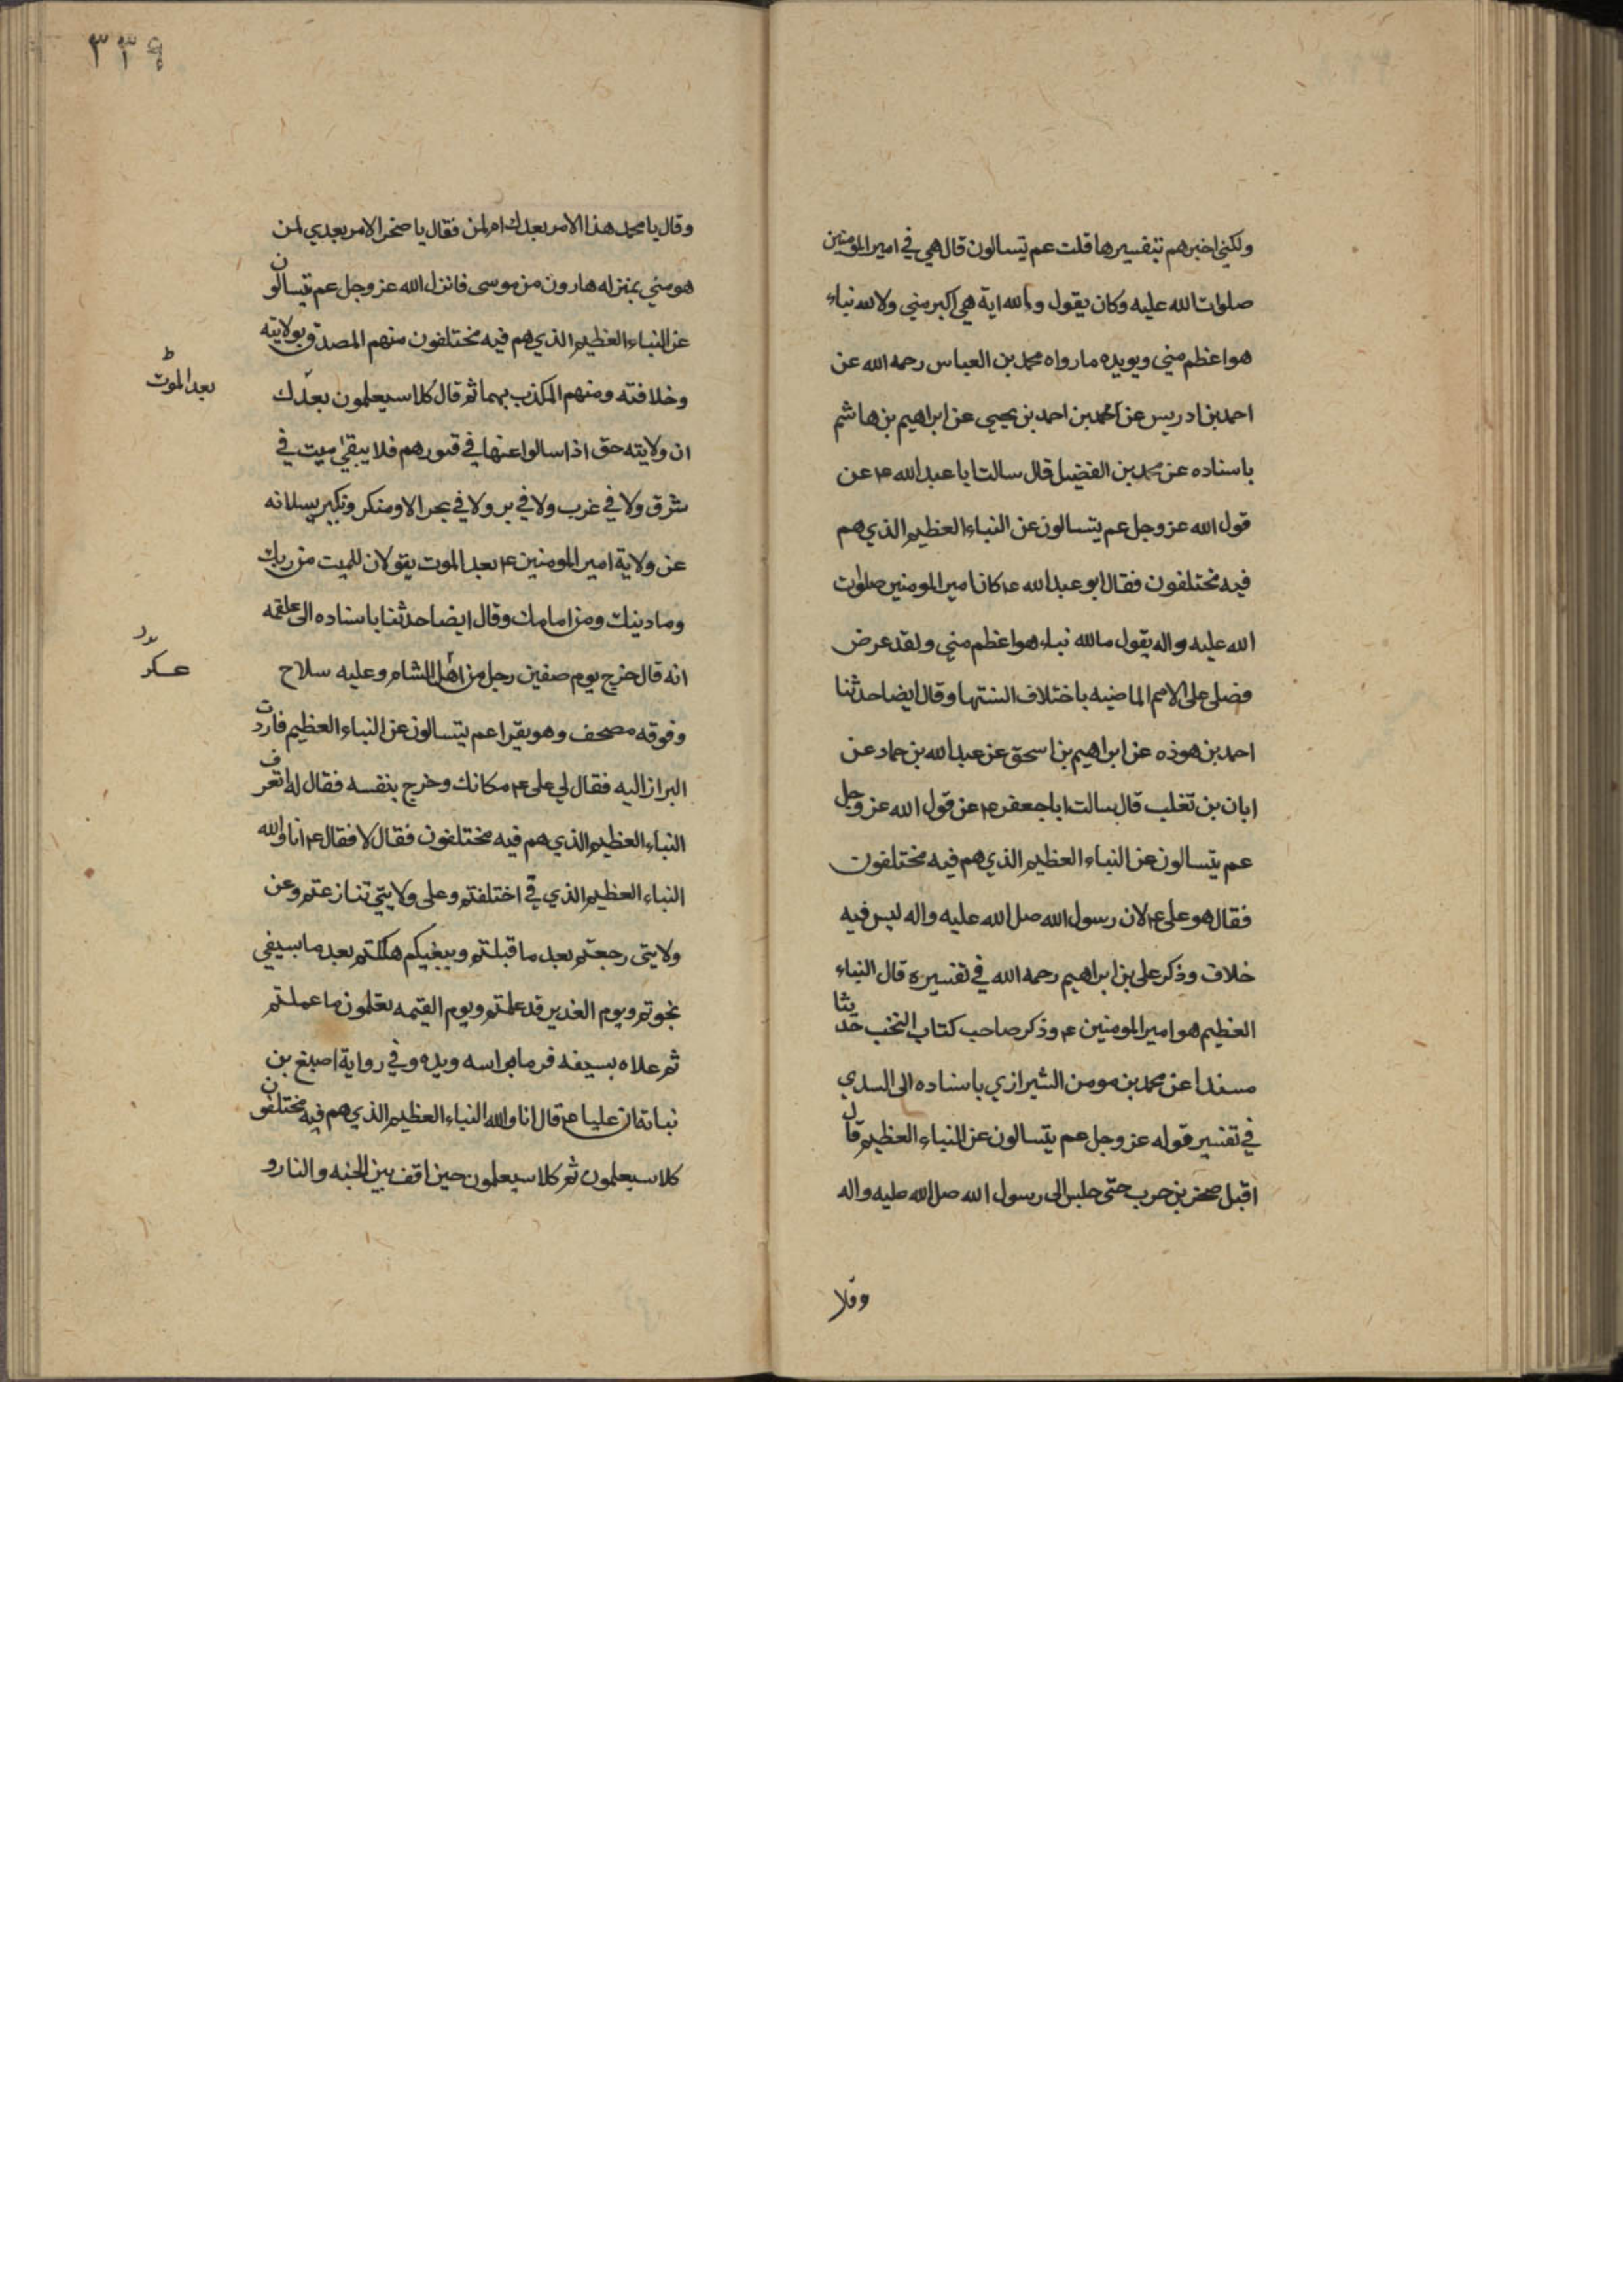 ولكني اخبرهم بتفسيرها قلت عم يتسالون قال هي في امير المومنين
صلوات الله عليه وكان يقول والله اية هي اكبر مني ولا لله نباء
هو اعظم مني ويويده ما رواه محمد بن العباس رحمه الله عن
احمد بن ادريس عن محمد بن احمد بن يحيى عن ابراهيم بن هاشم
باسناده عن محمد بن الفضيل قال سالت ابا عبد الله ع عن
قول الله عز وجل عم يتسالون عن النباء العظيم الذي هم
فيه مختلفون فقال ابو عبد الله ع كان امير المومنين صلوات
الله عليه واله يقول ما لله نباء هو اعظم مني ولقد عرض
فضلي على الامم الماضيه باختلاف السنتها وقال ايضا حدثنا
احمد بن هوذه عن ابراهيم بن اسحق عن عبد الله بن حماد عن
ابان بن تغلب قال سالت ابا جعفر ع عن قول الله عز وجل
عم يتسالون عن النباء العظيم الذي هم فيه مختلفون
فقال هو علي ع لان رسول الله صل الله عليه واله ليس فيه
خلاف وذكر علي بن ابراهيم رحمه الله في تفسيره قال النباء
العظيم هو امير المومنين ع وذكر صاحب كتاب النخب حديثا
مسندا عن محمد بن مومن الشيرازي باسناده الى السدي
في تفسير قوله عز وجل عم يتسالون عن النباء العظيم قال
اقبل صخر بن حرب حتى جلس الى رسول الله صل الله عليه واله
٣٣٩
وقال يا محمد هذا الامر بعدك ام لمن فقال يا صخر الامر بعدي لمن
هو مني بمنزله هارون من موسى فانزل الله عز وجل عم يتسالون
عن النباء العظيم الذي هم فيه مختلفون منهم المصدق بولايته
وخلافته ومنهم المكذب بهما ثم قال كلا سيعلمون بعدك
بعد الموت
ان ولايته حق اذا سالوا عنها في قبورهم فلا يبقى ميت في
شرق ولا في غرب ولا في بر ولا في بحر الا ومنكر ونكير يسلانه
عن ولاية امير المومنين ع بعد الموت يقولان للميت من ربك
وما دينك ومن امامك وقال ايضا حدثنا باسناده الى علقمه
انه قال خرج يوم صفين رجل من اهل الشام وعليه سلاح
عسكر
وفوقه مصحف وهو يقرا عم يتسالون عن النباء العظيم فاردت
البراز اليه فقال لي علي ع مكانك وخرج بنفسه فقال له اتعرف
النباء العظيم الذي هم فيه مختلفون فقال لا فقال ع انا والله
النباء العظيم الذي في اختلفتم وعلى ولايتي تنازعتم وعن
ولايتي رجعتم بعد ما قبلتم وببغيكم هلكتم بعد ما بسيفي
نجوتم ويوم الغدير قد علمتم ويوم القيمه تعلمون ما عملتم
ثم علاه بسيفه فرما براسه ويده وفي رواية اصبغ بن
نباته ان عليا ع قال انا والله النباء العظيم الذي هم فيه مختلفون
كلا سيعلمون ثم كلا سيعلمون حين اقف بين الجنه والنار و